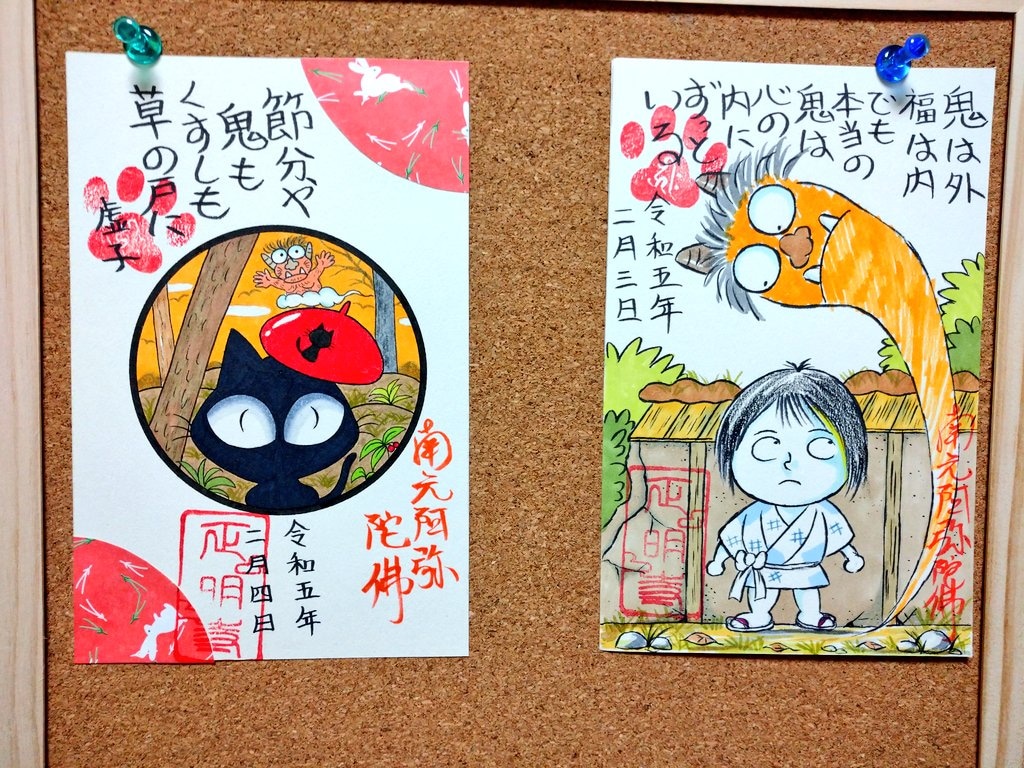 節分や
鬼も
くすしも
草の戸に
虚子
南无阿弥
陀佛
令和五年
二月四日
正明寺
鬼は外
福は内
でも
本当の
鬼は
心の
内に
ずっと
いる
令和五年
二月三日
南无阿弥陀佛
正明寺